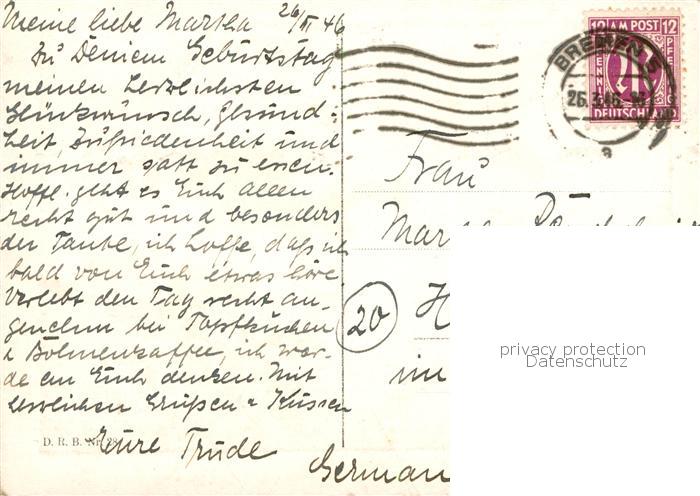 Meine liebe Martha 26/III 46
Zu Deniem Geburtstag
meinen herzlichsten
Glückwunsch, Gesund-
heit, Zufriedenheit und
immer satt zu essen.
Hoffl. geht es Euch allen
recht gut und besonders
der Tante, ich hoffe, daß ich
bald von Euch etwas höre
Verlebt den Tag recht an-
genehm bei Topfkuchen
& Bohnenkaffee, ich wer-
de an Euch denken. Mit
herzlichen Grüßen & Küssen
Eure Trude
D. R. B. Nr. 28
Frau
(20) H
im
German
BREMEN 5
26.3.46
a
12 AM POST 12
PFENNIG
PFENNIG
DEUTSCHLAND
privacy protection
Datenschutz